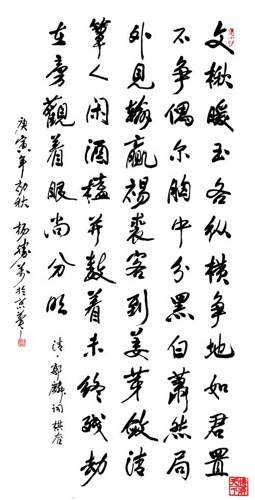 文楸暖玉各纵横争地如君置
不争偶尔胸中分黑白萧然局
外見输赢裼裘客到姜芽敛清
簟人闲酒榼并数着未终残劫
在旁觀着眼尚分明
清·郑麟词棋奁
庚寅年初秋 杨胜於京华